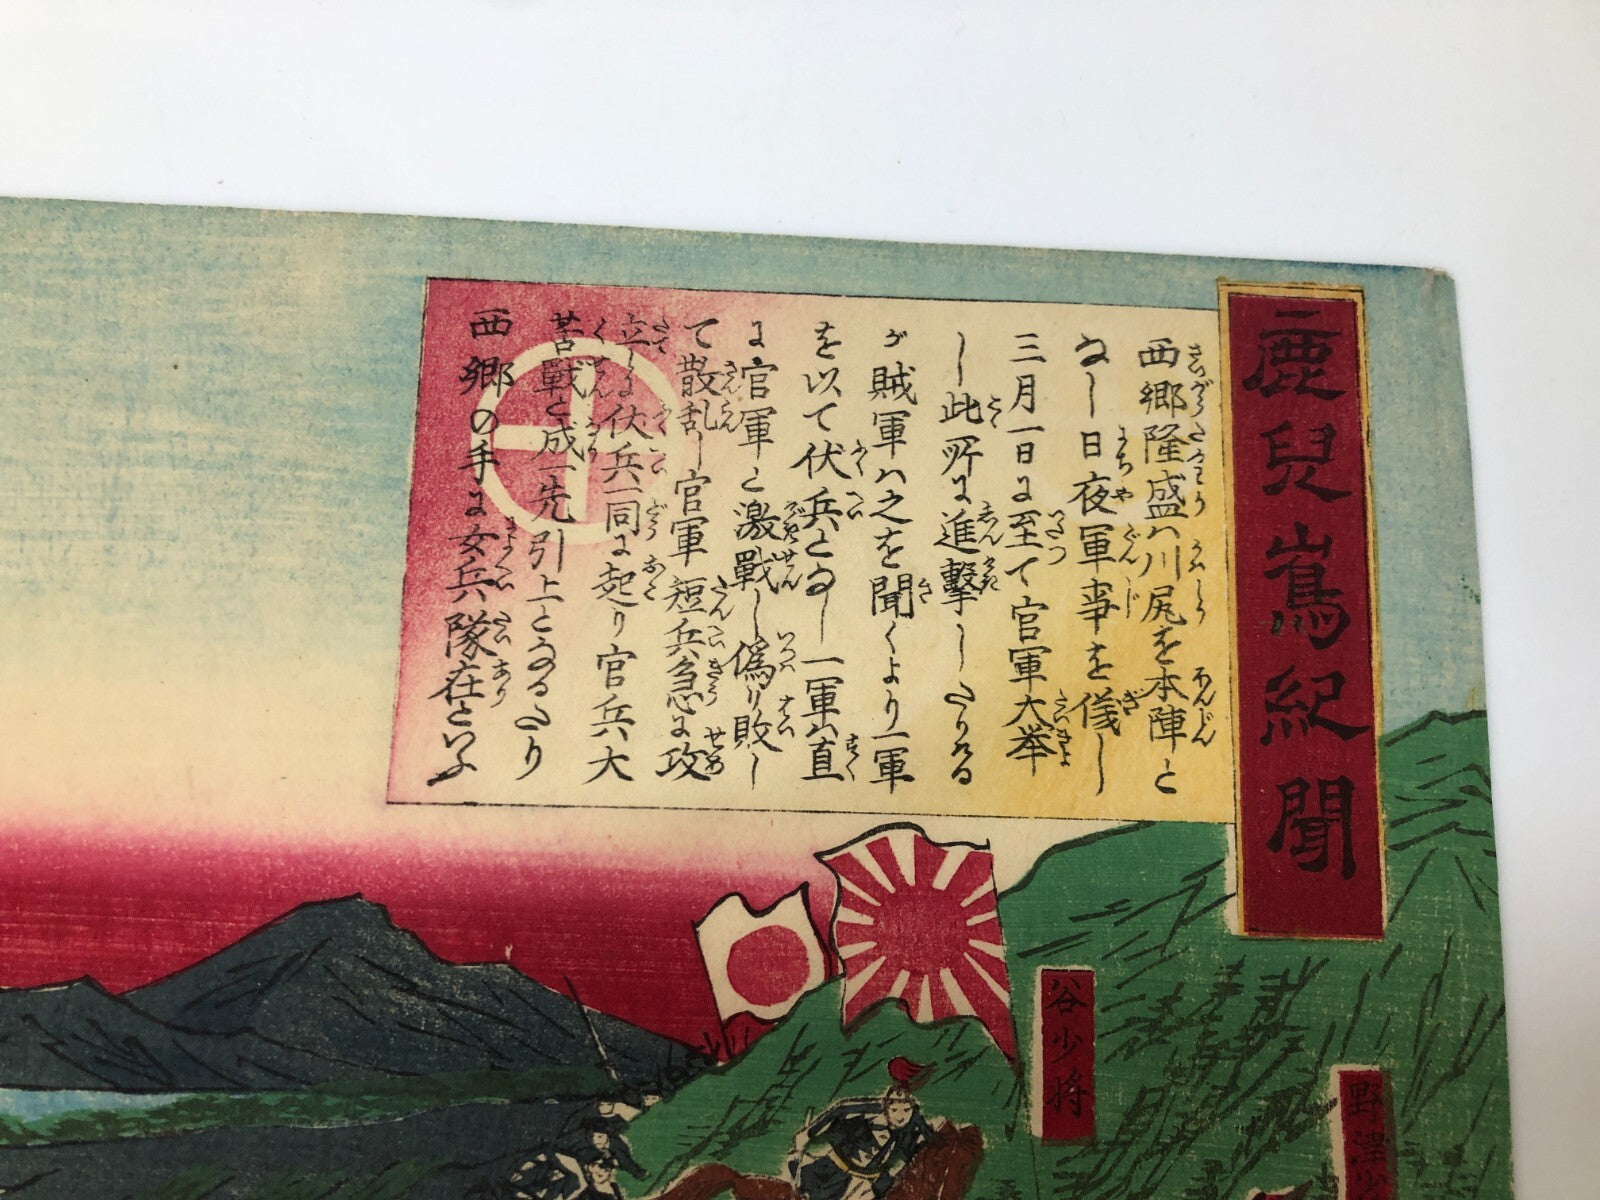 鹿兒嶌紀聞
西郷隆盛ハ川尻を本陣と
なし日夜軍事を儀し
三月一日に至て官軍大举
し此所に進擊したりける
が賊軍ハ之を聞くより一軍
を以て伏兵となし一軍ハ直
に官軍と激戰し偽り敗し
て散乱し官軍短兵急に攻
立しに伏兵一同に起り官兵大
苦戰と成一先引上となるたり
西郷の手に女兵隊在といふ
谷少将
野津